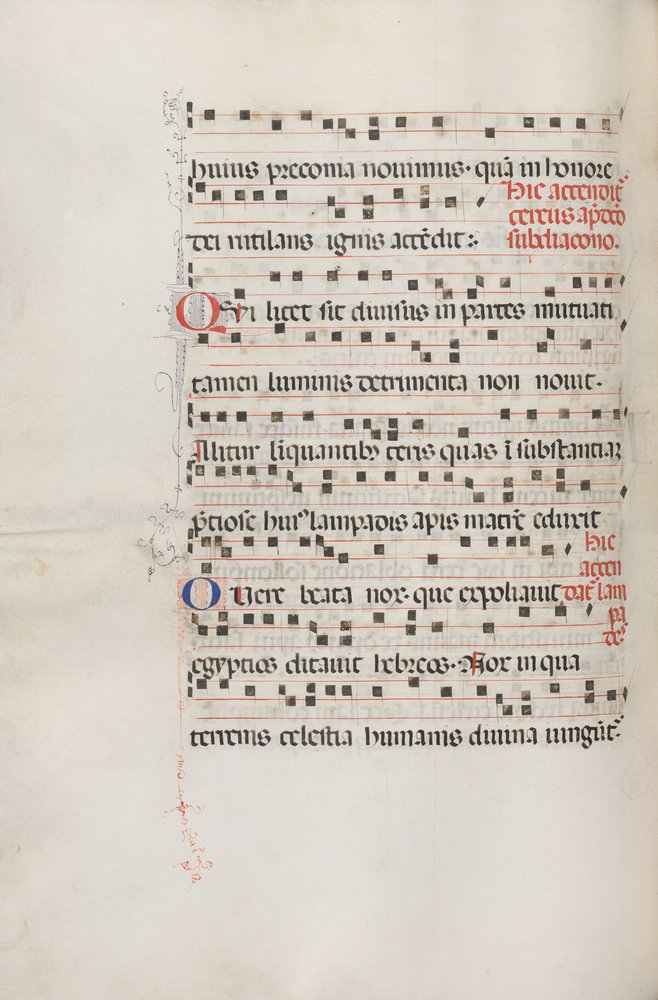 huius preconia nouimus. quā in honore
dei rutilans ignis accēdit:
Hic accendit̄
cereus ap̄ deo
subdiacono.
Qvi licet sit diuisus in partes mutuati
tamen luminis detrimenta non nouit.
Alitur liquantibꝫ ceris quas ī substantiaꝫ
p̄tiose huiꝰ lampadis apis mater eduxit
O Uere beata nox. que expoliauit
Hic
accen
dāt̄ lam
pa
des
egyptios ditauit hebreos. Nox in qua
terrenis celestia humanis diuina iungūt̄.